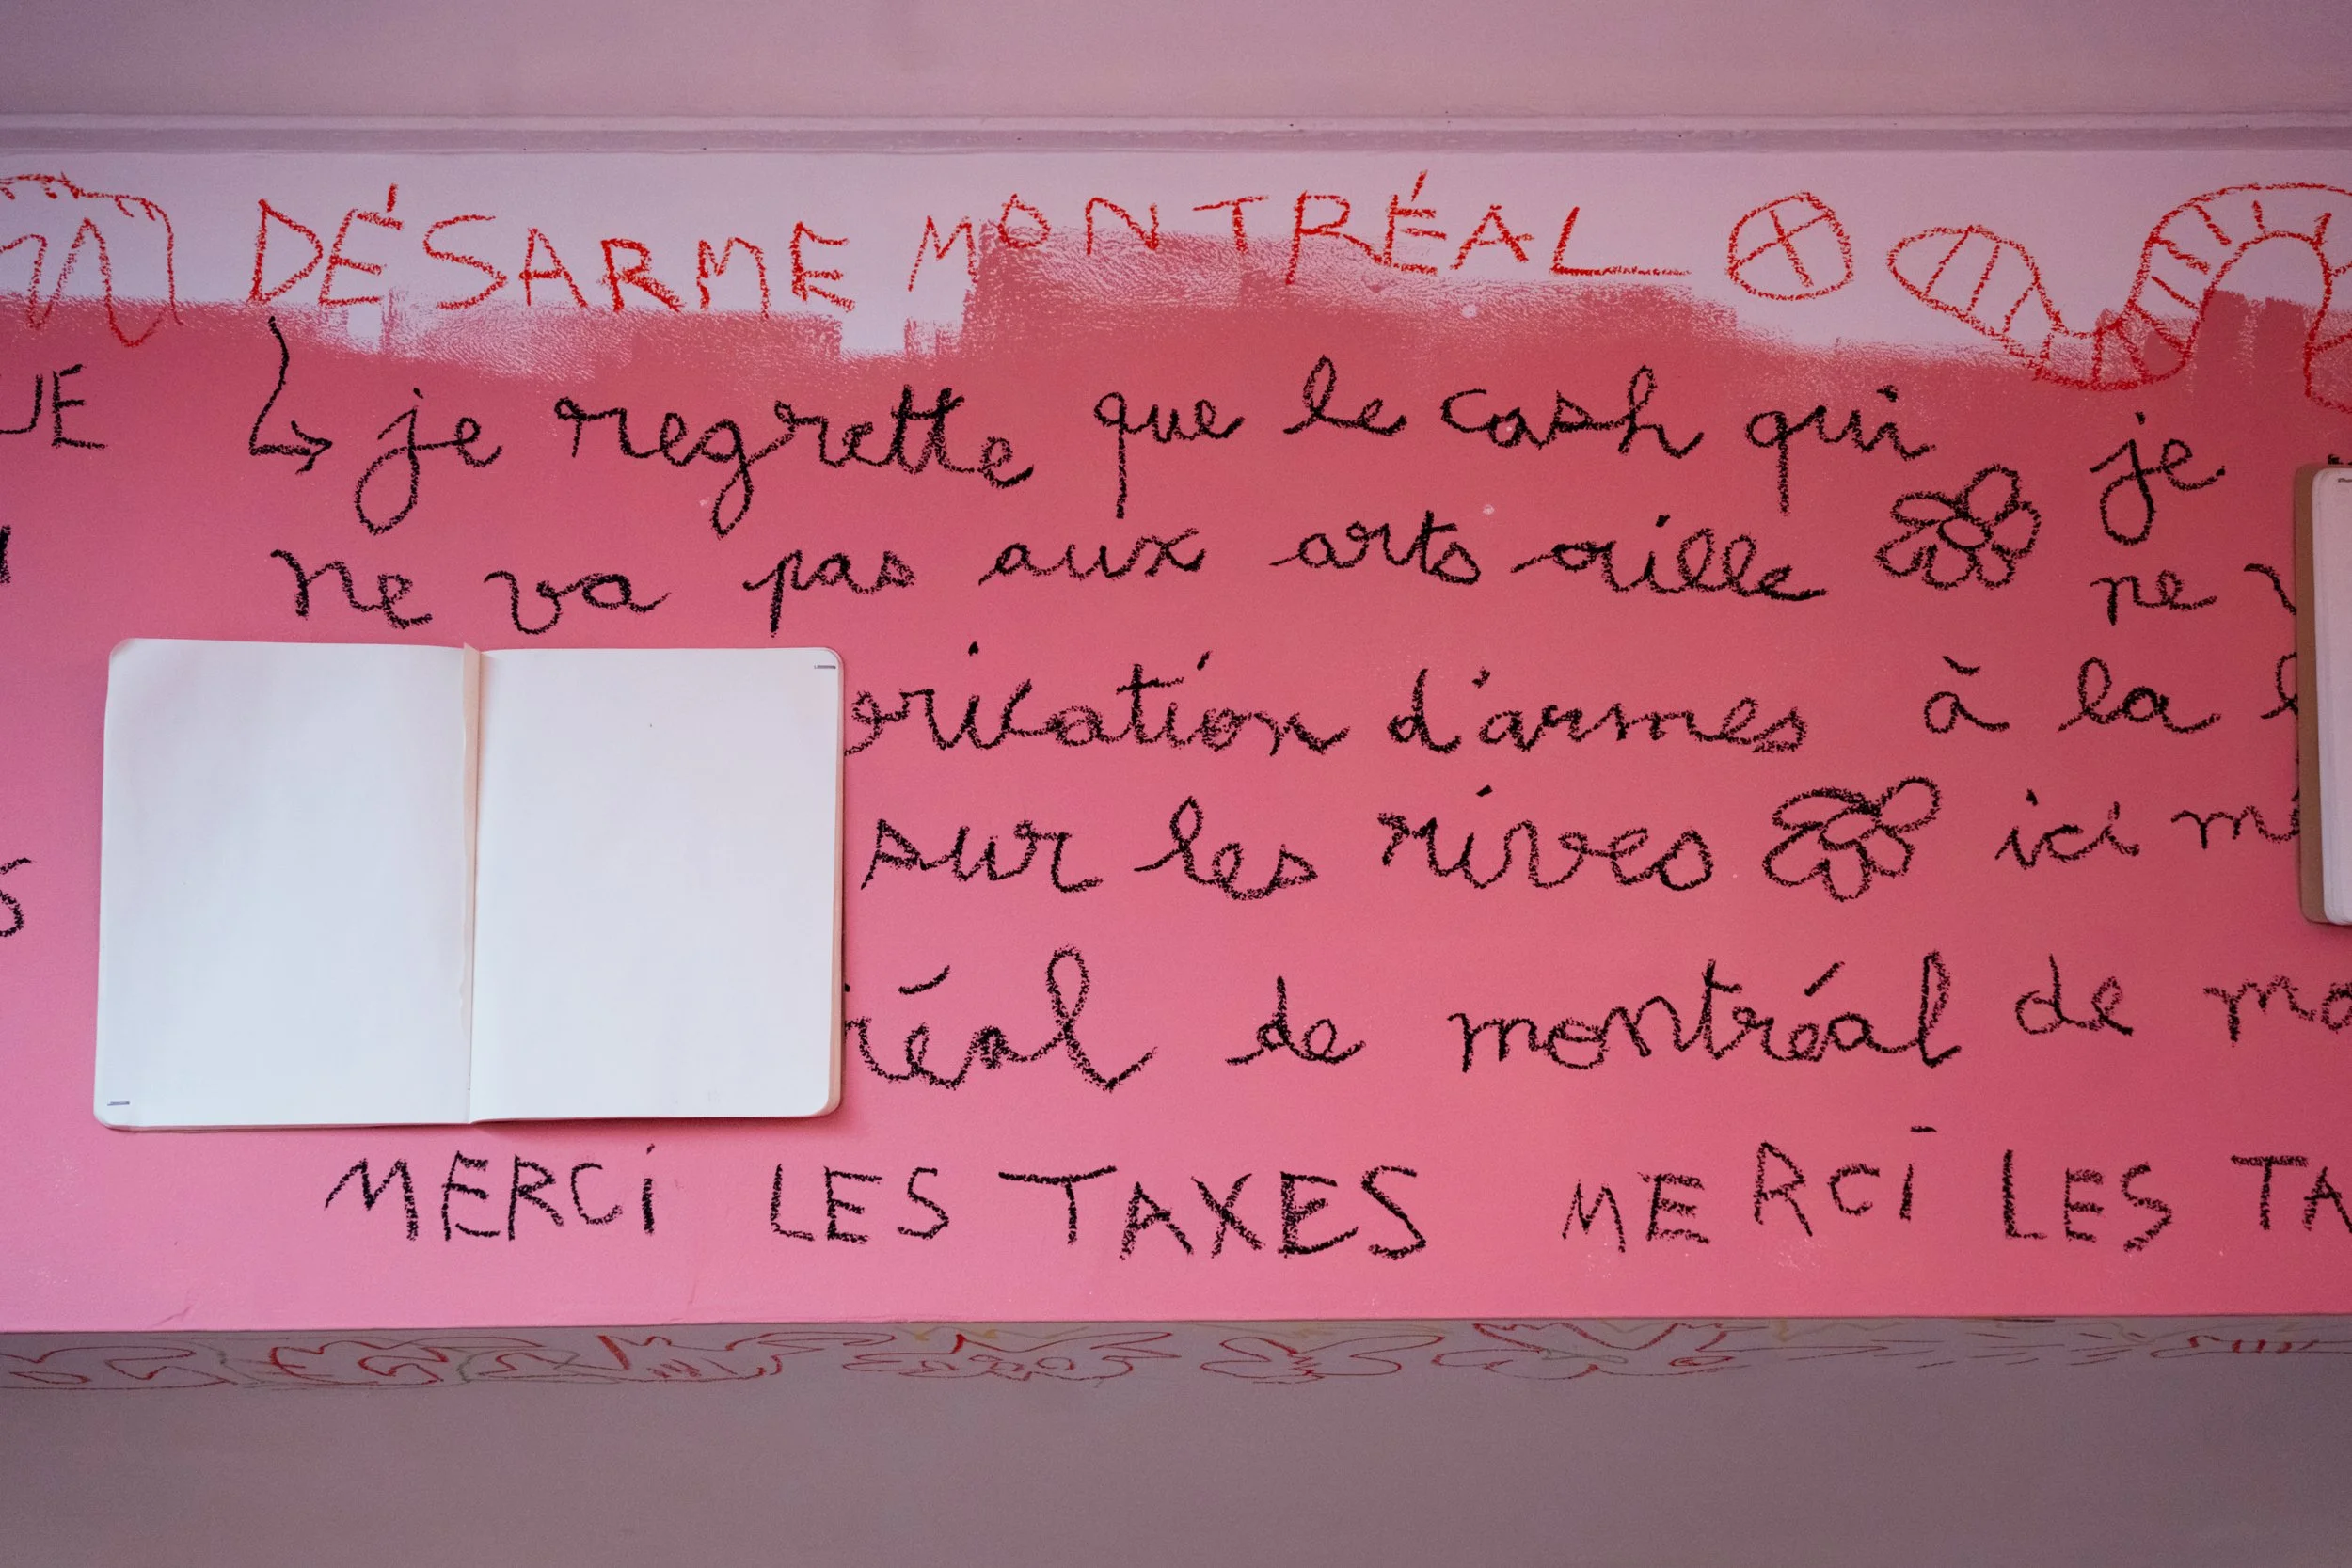 DÉSARME MONTRÉAL
UE
je regrette que le cash qui je
ne va pas aux arts aille ne
d'armes à la
sur les rives ici
de montréal de
MERCI LES TAXES MERCI LES